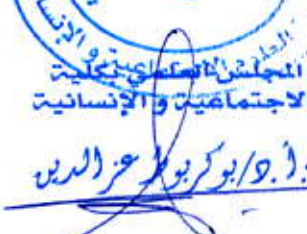 المجلس العلمي لكلية
الاجتماعية و الإنسانية
أ.د/بوكربوط عز الدين